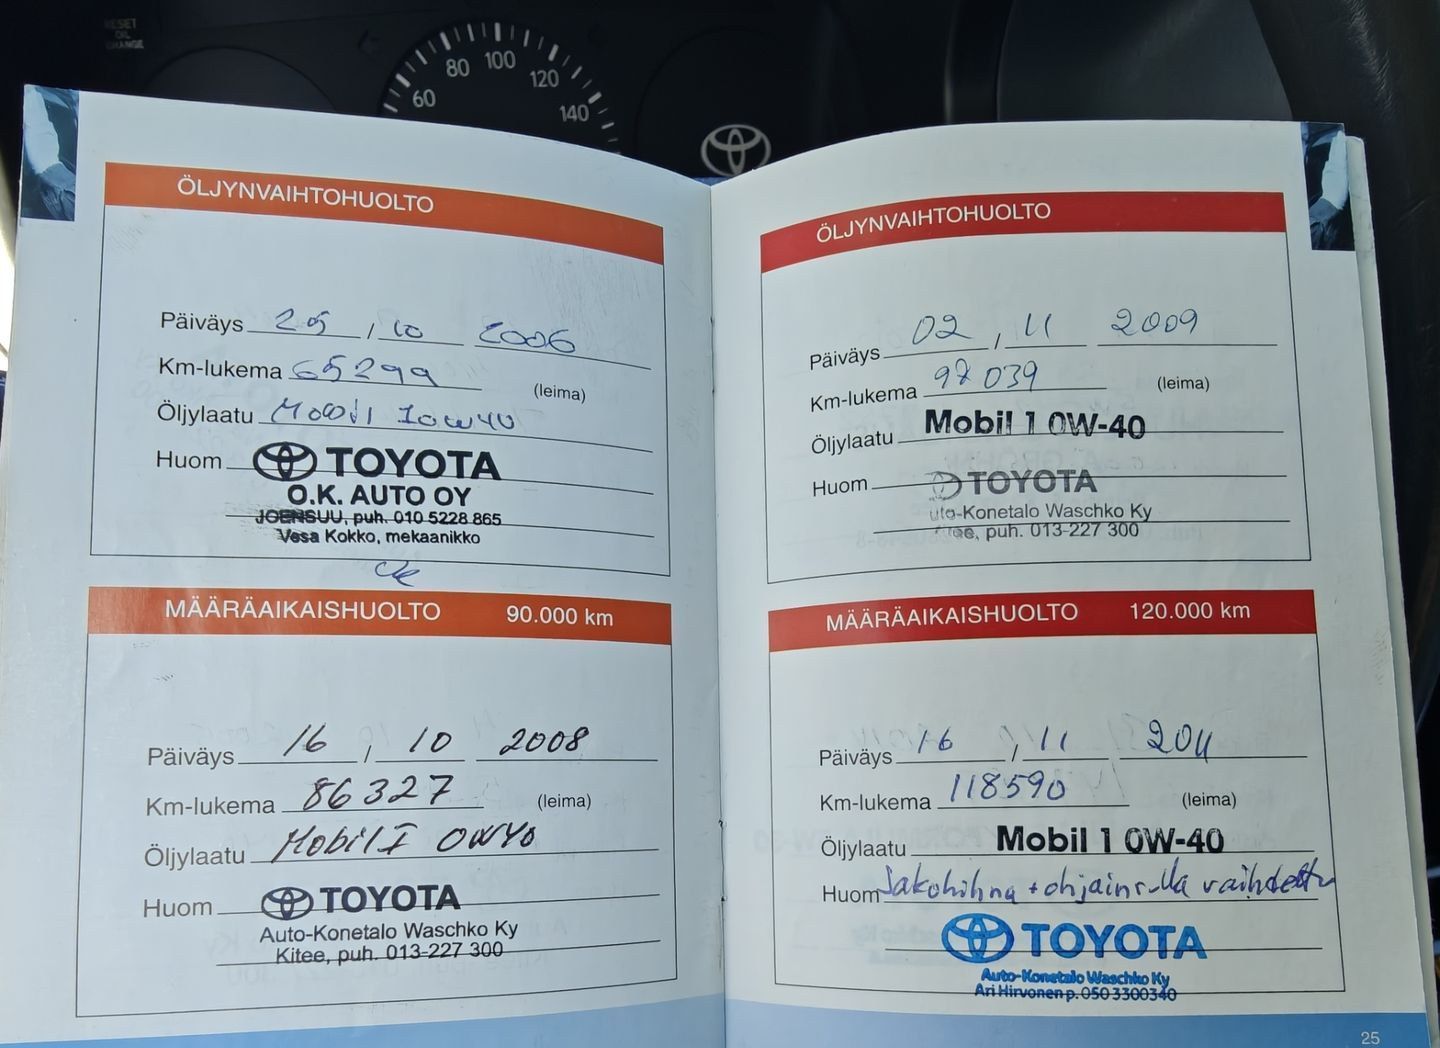 RESET
OIL
CHANGE
60
80
100
120
140
ÖLJYNVAIHTOHUOLTO
Päiväys 25 / 10 2006
Km-lukema 65299
(leima)
Öljylaatu Mobil 10W40
Huom
TOYOTA
O.K. AUTO OY
JOENSUU, puh. 010 5228 865
Vesa Kokko, mekaanikko
MÄÄRÄAIKAISHUOLTO 90.000 km
Päiväys 16 / 10 2008
Km-lukema 86327
(leima)
Öljylaatu Mobil 1 0W40
Huom
TOYOTA
Auto-Konetalo Waschko Ky
Kitee, puh. 013-227 300
ÖLJYNVAIHTOHUOLTO
Päiväys 02 / 11 2009
Km-lukema 97 039
(leima)
Öljylaatu Mobil 1 0W-40
Huom
TOYOTA
uto-Konetalo Waschko Ky
Kitee, puh. 013-227 300
MÄÄRÄAIKAISHUOLTO 120.000 km
Päiväys 16 / 11 2011
Km-lukema 118590
(leima)
Öljylaatu Mobil 1 0W-40
Huom Jakohihna + ohjainrulla vaihdettu
TOYOTA
Auto-Konetalo Waschko Ky
Ari Hirvonen p. 050 3300340
25